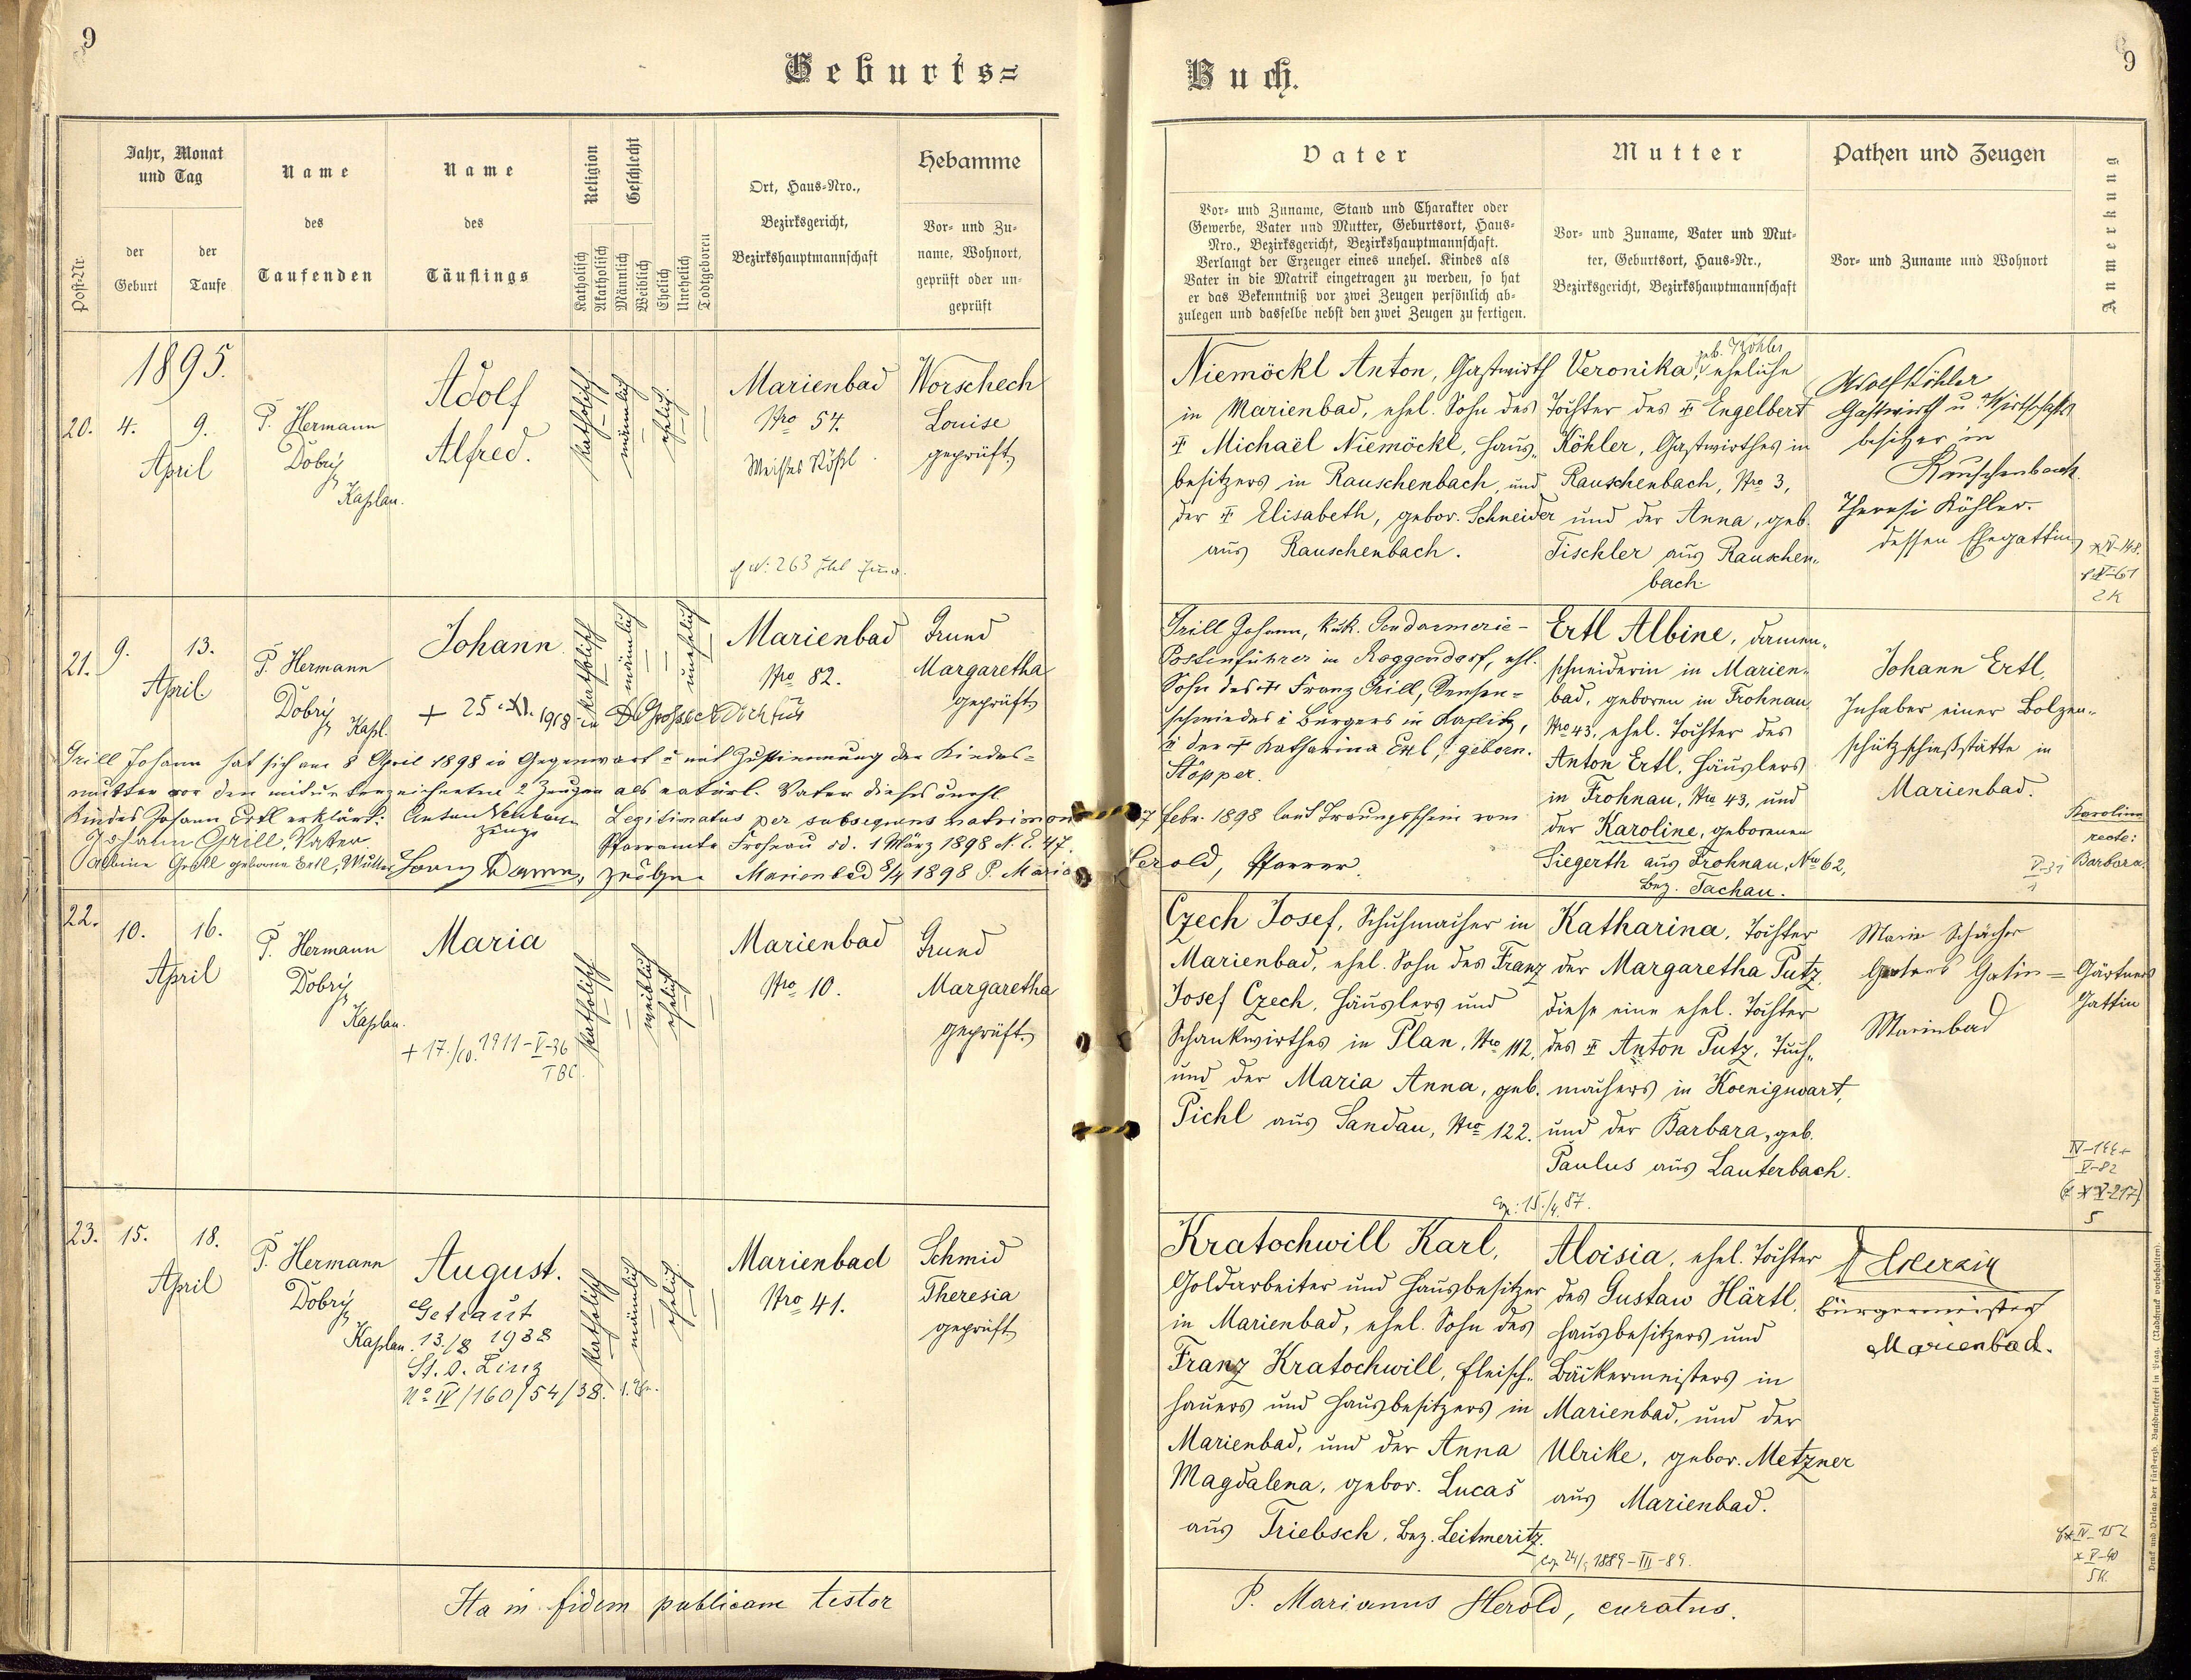 9
Geburts=
Jahr, Monat
und Tag
Name
des
Taufenden
Name
des
Täuflings
Religion
Geschlecht
Ort, Haus-Nro.,
Bezirksgericht,
Bezirkshauptmannschaft
Hebamme
Vor- und Zu-
name, Wohnort,
geprüft oder un-
geprüft
Post-Nr.
der
Geburt
der
Taufe
Katholisch
Akatholisch
Männlich
Weiblich
Ehelich
Unehelich
Todtgeboren
1895.
20. 4. 9.
April
P. Hermann
Dobrý
Kaplan.
Adolf
Alfred.
katholisch
männlich
ehelich.
Marienbad
Nro 54.
Weißes Rößl
Worschech
Louise
geprüft
21. 9. 13.
April
P. Hermann
Dobrý
Kapl.
Johann
katholisch
männlich
unehelich
Marienbad
Nro 82.
Grund
Margaretha
geprüft
Grill Johann hat sich am 8 April 1898 in Gegenwart u mit Zustimmung der Kindes-
mutter vor den mitunterzeichneten 2 Zeugen als natürl. Vater dieses unehl.
Kindes Johann Ertl erklärt:
Zeuge
Johann Grill, Vater
Legitimatus per subsequens matrimon
Pfarramts Frohnau dd. 1 März 1898 N. E. 47.
Zeuge. Marienbad 8/4 1898 P. Maria
22. 10. 16.
April
P. Hermann
Dobrý
Kaplan.
Maria
+ 17./10. 1911-V-36
TBC.
katholisch
weiblich
ehelich
Marienbad
Nro 10.
Grund
Margaretha
geprüft.
23. 15. 18.
April
P. Hermann
Dobrý
Kaplan.
August.
Getraut
13./8 1938
St. A. Linz
No IV/160/54/38.
katholisch
männlich
ehelich.
Marienbad
Nro 41.
Schmid
Theresia
geprüft
Ita in fidem publicam testor
9
Buch.
Vater
Vor- und Zuname, Stand und Charakter oder
Gewerbe, Vater und Mutter, Geburtsort, Haus-
Nro., Bezirksgericht, Bezirkshauptmannschaft.
Verlangt der Erzeuger eines unehel. Kindes als
Vater in die Matrik eingetragen zu werden, so hat
er das Bekenntniß vor zwei Zeugen persönlich ab-
zulegen und dasselbe nebst den zwei Zeugen zu fertigen.
Mutter
Vor- und Zuname, Vater und Mut-
ter, Geburtsort, Haus-Nr.,
Bezirksgericht, Bezirkshauptmannschaft
Pathen und Zeugen
Vor- und Zuname und Wohnort
Anmerkung
Niemöckl Anton, Gastwirth
in Marienbad, ehel. Sohn des
† Michaël Niemöckl, Haus-
besitzers in Rauschenbach, und
der † Elisabeth, gebor. Schneider
aus Rauschenbach.
geb. Köhler
Veronika, eheliche
Tochter des † Engelbert
Köhler, Gastwirthes in
Rauschenbach, Nro 3,
und der Anna, geb.
Tischler aus Rauschen-
bach.
Adolf Köhler
Gastwirth u. Wirtschafts
besitzer in
Rauschenbach.
Theresi Köhler.
dessen Ehegattin
2K
Grill Johann, k.u.k. Gendarmerie-
Postenführer in Roggendorf, ehl.
Sohn des † Franz Grill, Sensen-
schmiedes u Bürgers in Kaplitz,
u der † Katharina Ertl, geborn.
Stöpper.
7 febr. 1898 laut Trauungsschein vom
Herold, Pfarrer.
Ertl Albine, Damen-
schneiderin in Marien-
bad, geboren in Frohnau
Nro 43, ehel. Tochter des
Anton Ertl, Häuslers
in Frohnau, Nro 43, und
der Karoline, geborenen
Siegerth aus Frohnau, Nro 62,
Bez. Tachau.
Johann Ertl,
Inhaber einer Bolzen-
schützschießstätte in
Marienbad.
Karoline
recte:
Barbara.
Czech Josef, Schuhmacher in
Marienbad, ehel. Sohn des Franz
Josef Czech, Häuslers und
Schankwirthes in Plan, Nro 112,
und der Maria Anna, geb.
Pichl aus Sandau, Nro 122.
Katharina, Tochter
der Margaretha Putz,
diese eine ehel. Tochter
des † Anton Putz, Tuch-
machers in Koenigswart,
und der Barbara, geb.
Paulus aus Lauterbach.
Gärtners
Gattin
Marienbad
IV-144+
V-82
5
Cop: 15./4. 87.
Kratochwill Karl,
Goldarbeiter und Hausbesitzer
in Marienbad, ehel. Sohn des
Franz Kratochwill, Fleisch-
hauers und Hausbesitzers in
Marienbad, und der Anna
Magdalena, gebor. Lucas
aus Triebsch, Bez. Leitmeritz.
Aloisia, ehel. Tochter
des Gustav Härtl,
Hausbesitzers und
Bäckermeisters in
Marienbad, und der
Ulrike, gebor. Metzner
aus Marienbad.
Bürgermeister
Marienbad.
P. Marianus Herold, curatus.
Druck und Verlag der fürsterzb. Buchdruckerei in Prag. (Nachdruck vorbehalten).